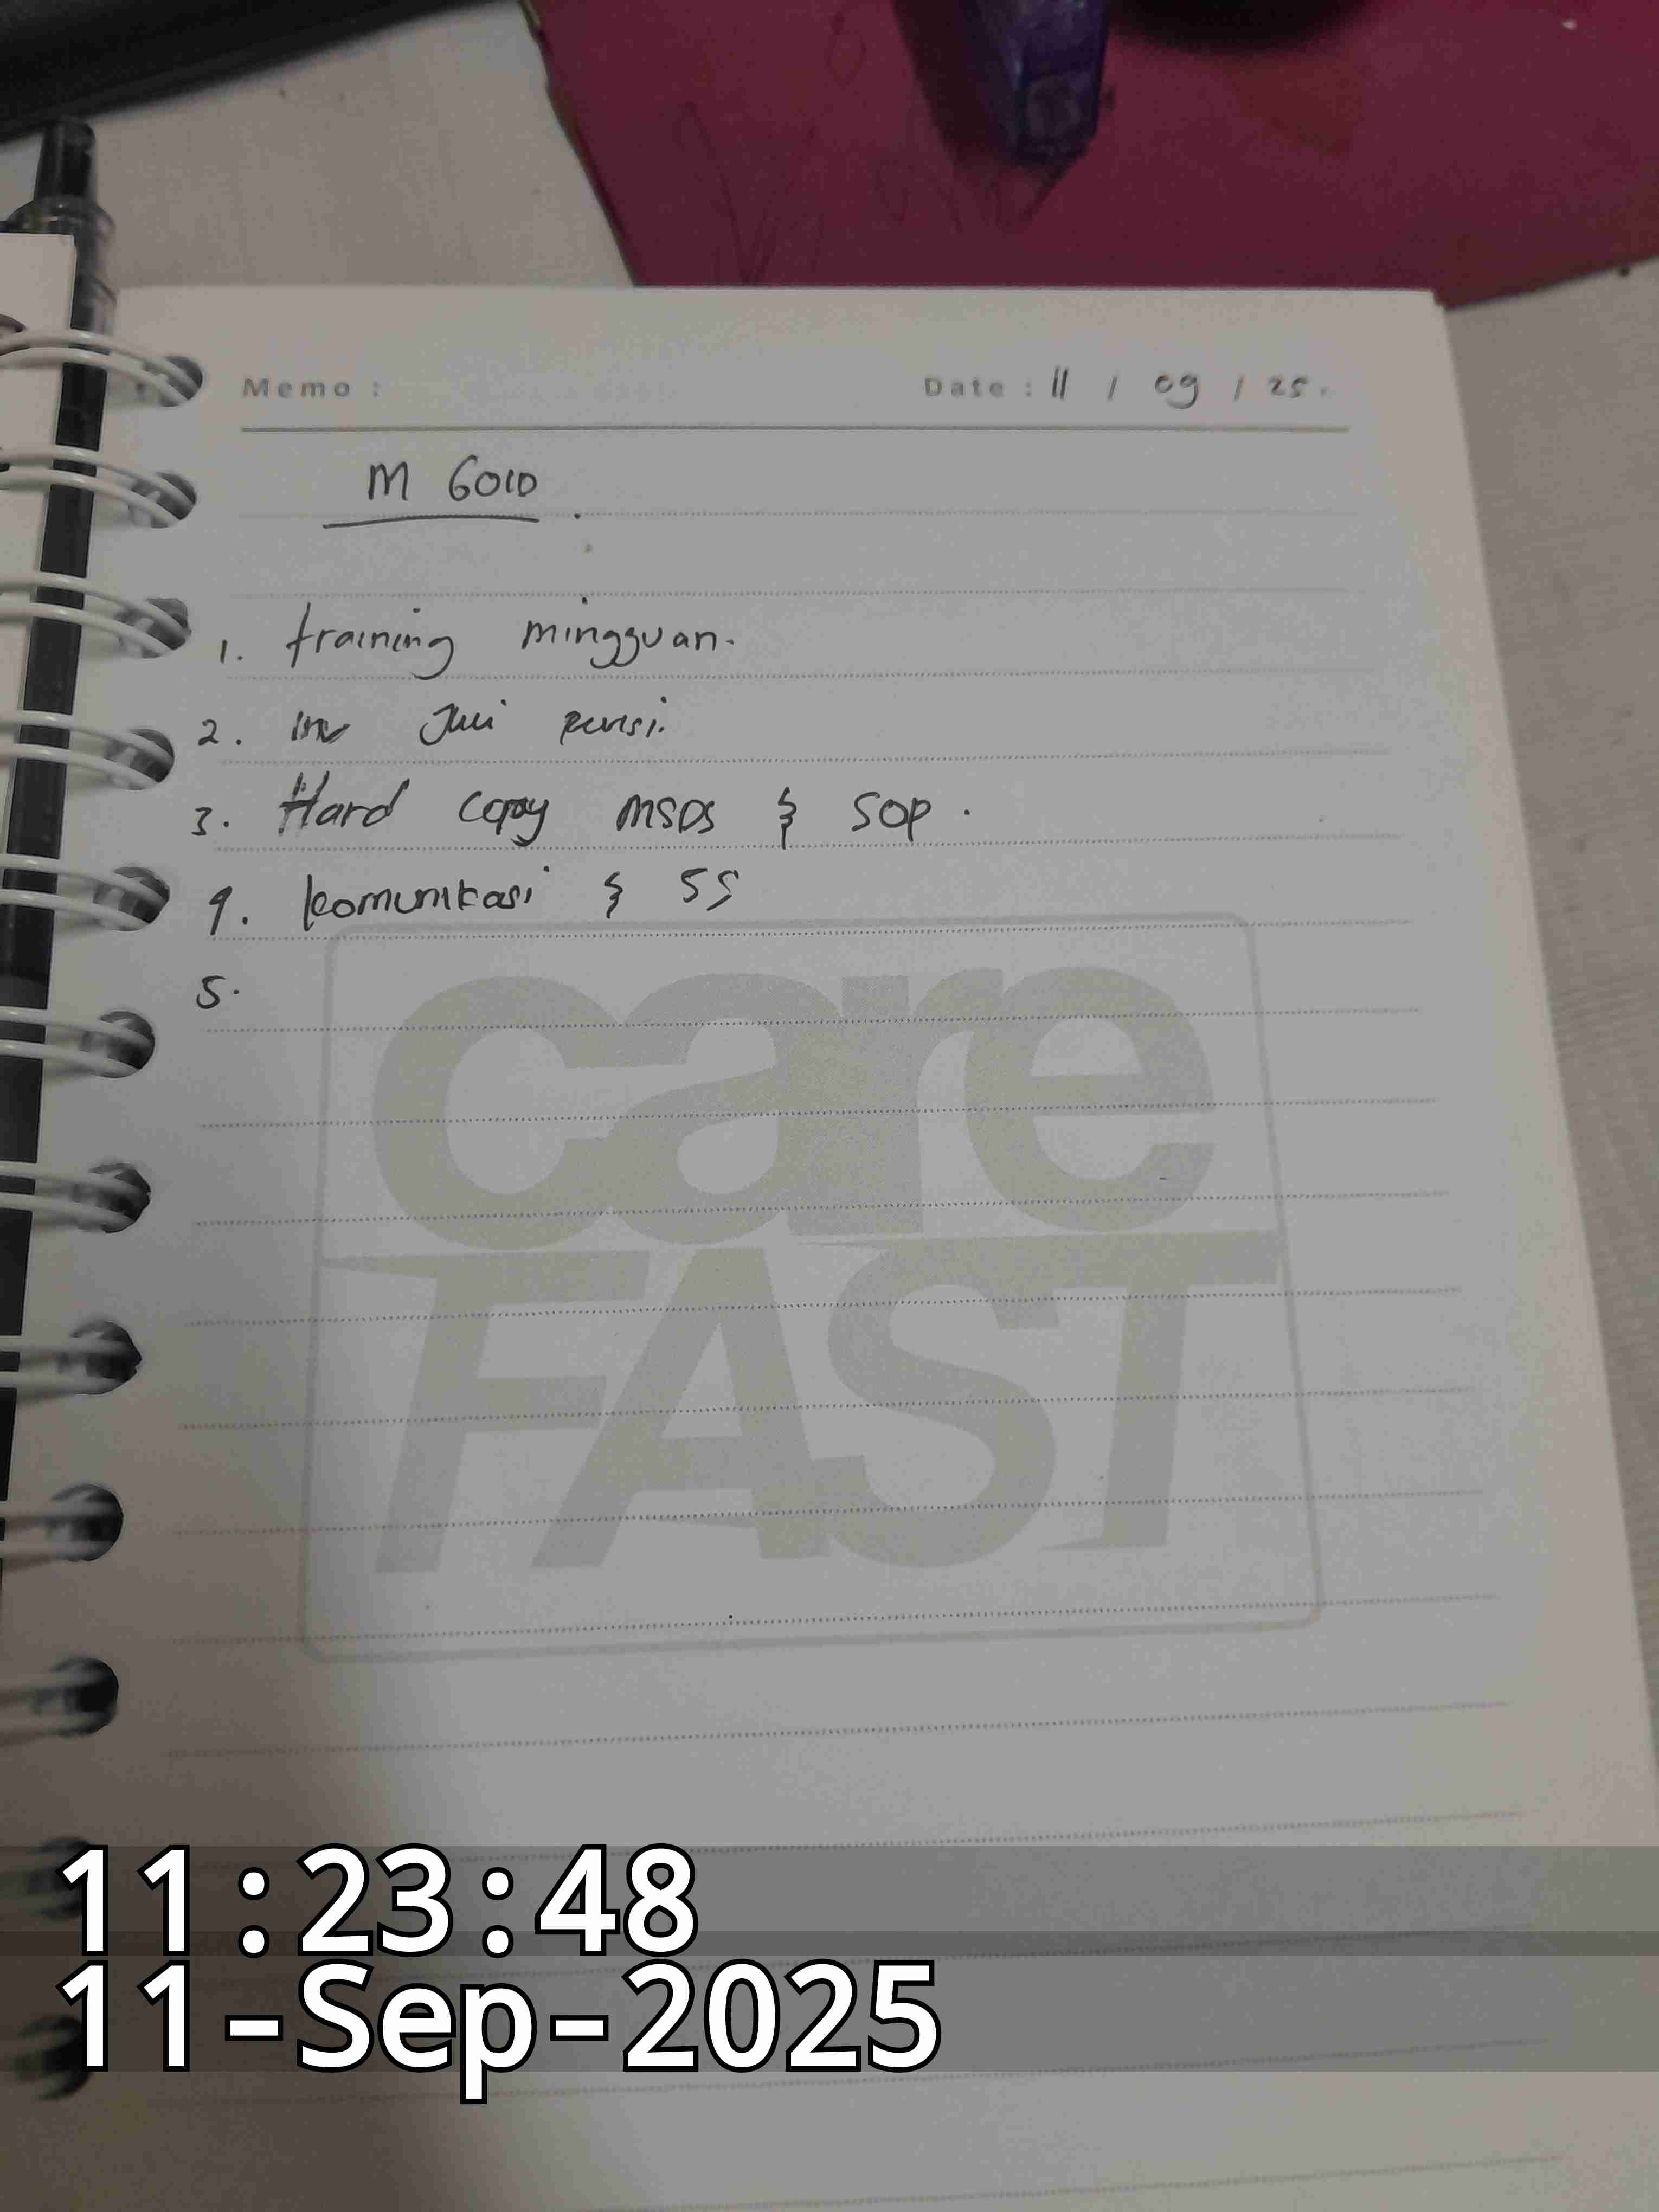 Memo : Date : 11 / 09 / 25.
M GOLD.
1. training mingguan.
2. inv Juli revisi.
3. Hard copy MSDS & SOP.
4. komunikasi & 5S
5.
care
FAST
11:23:48
11-Sep-2025